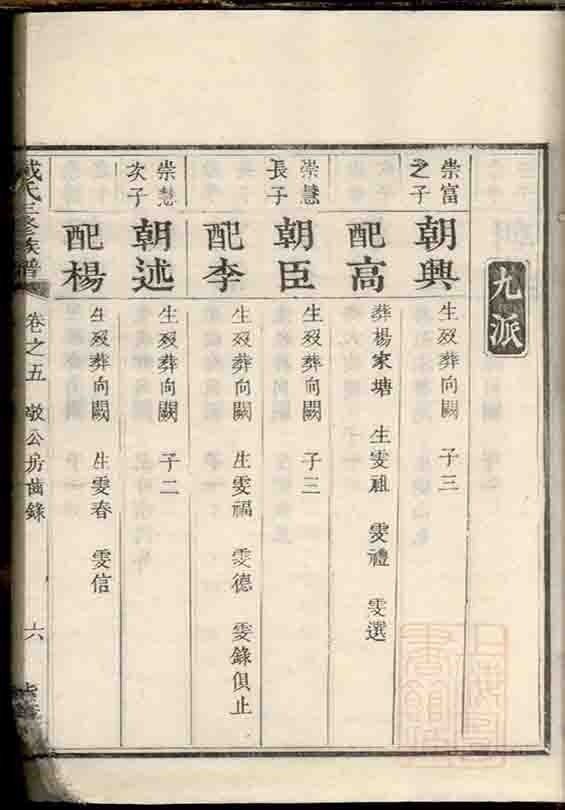 九派
崇富之子
朝興 生歿葬向闕 子三
配高 葬楊家塘 生雯祖 雯禮 雯選
崇慧長子
朝臣 生歿葬向闕 子三
配李 生歿葬向闕 生雯福 雯德 雯錄俱止
崇慧次子
朝述 生歿葬向闕 子二
配楊 生歿葬向闕 生雯春 雯信
氏三修族譜 卷之五 公房齒錄 六